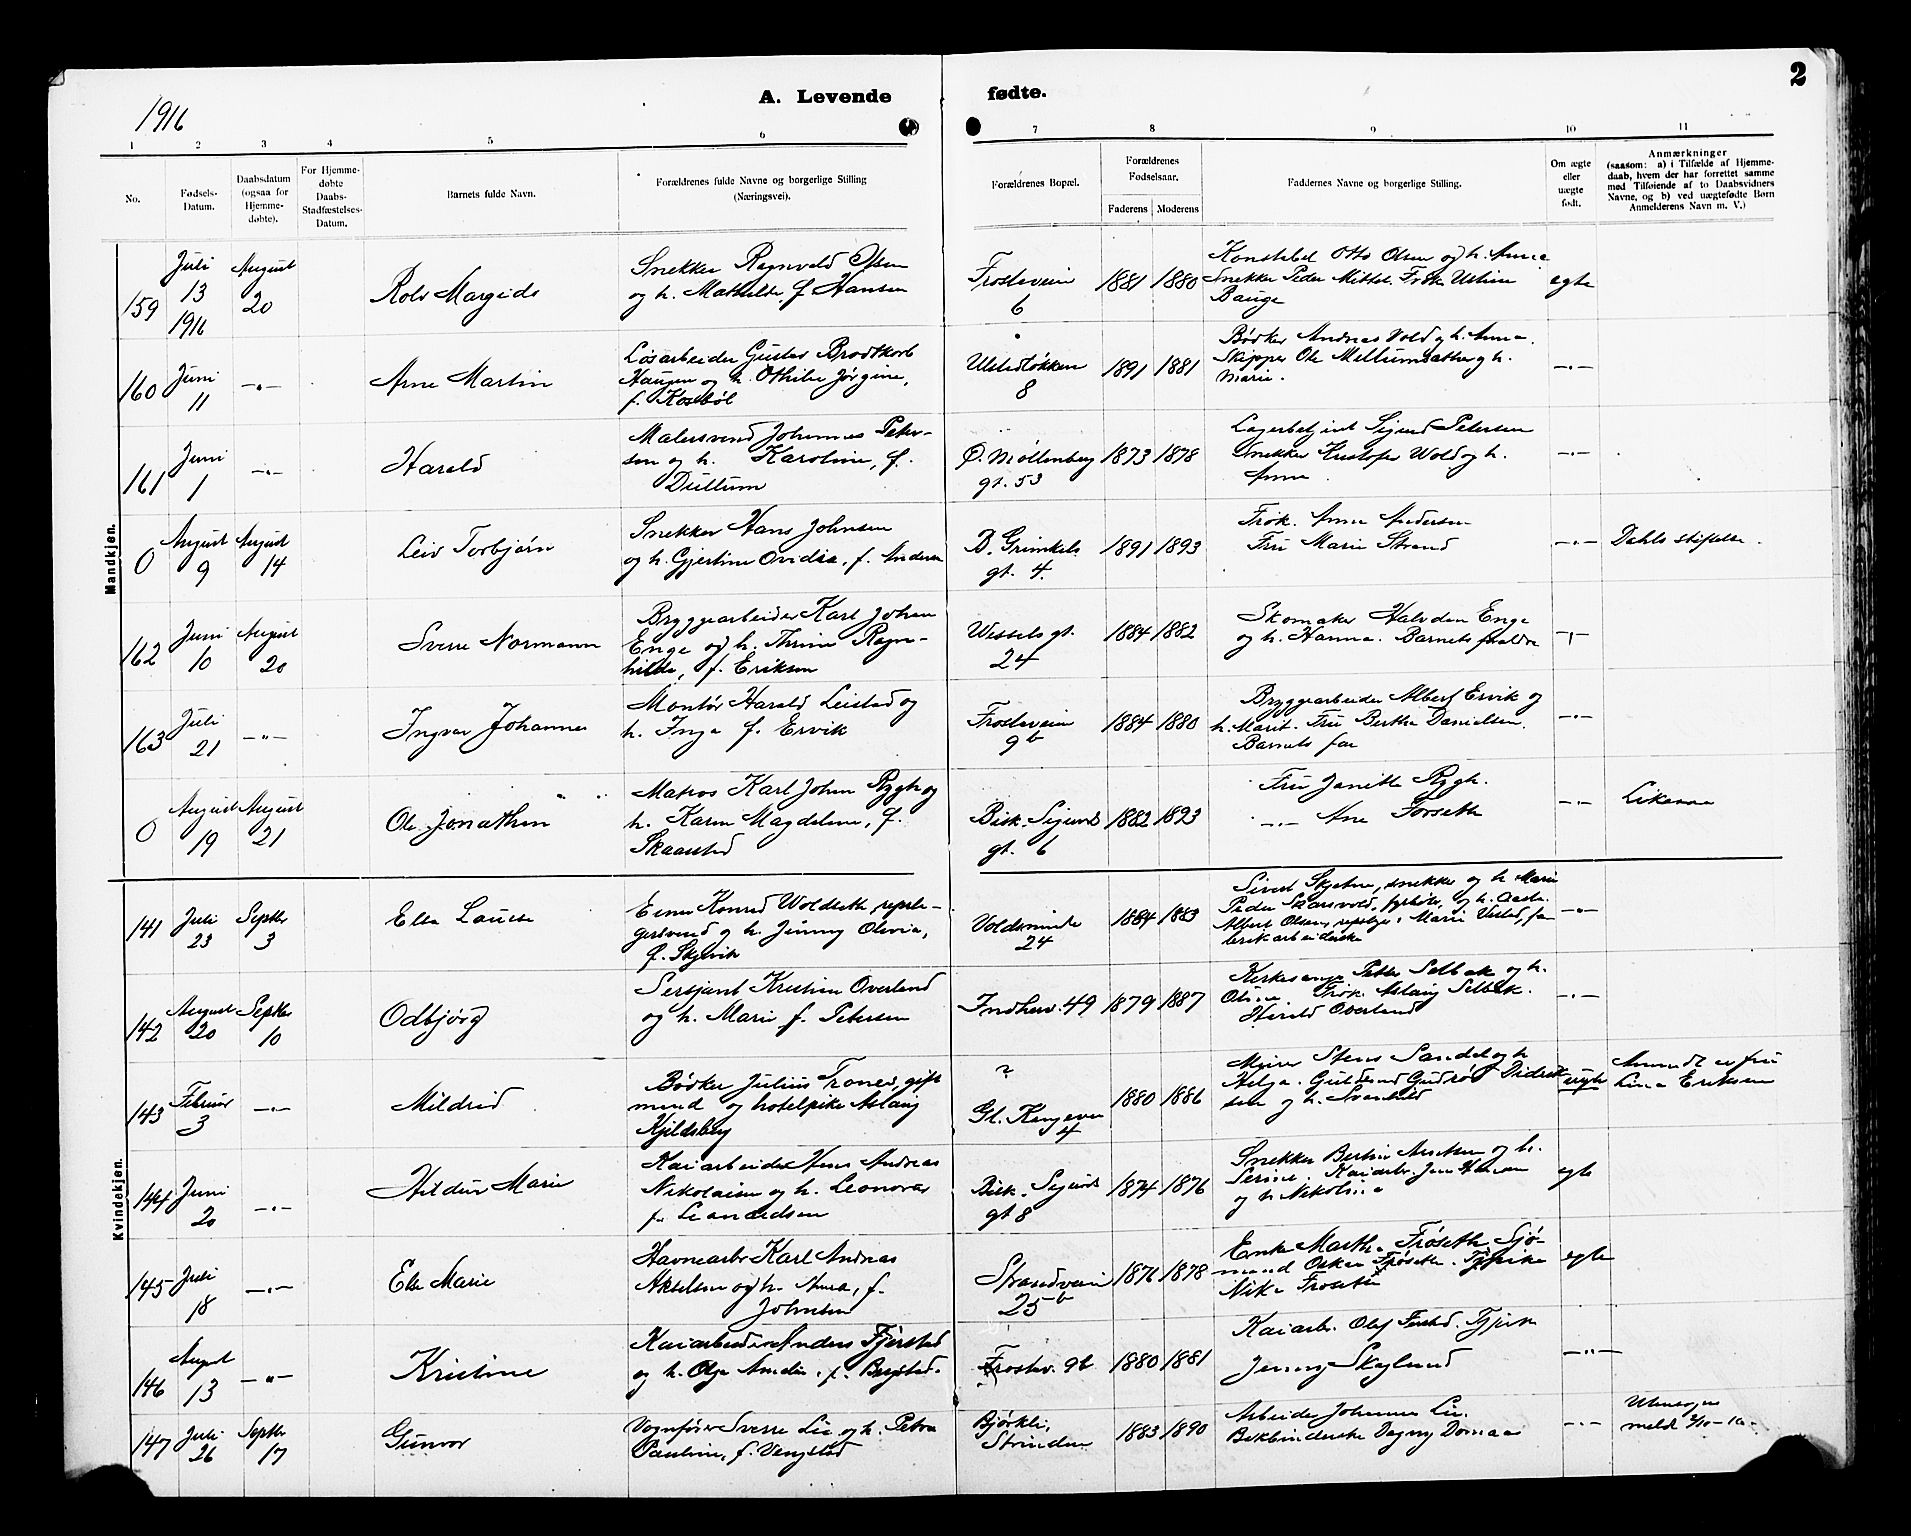 2
1916
A. Levende fødte.
1 2 3 4 5 6 7 8 9 10 11
No.
Fødsels-
Datum.
Daabsdatum
(ogsaa for
Hjemme-
døbte).
For Hjemme-
døbte
Daabs-
Stadfæstelses-
Datum.
Barnets fulde Navn.
Forældrenes fulde Navne og borgerlige Stilling
(Næringsvei).
Forældrenes Bopæl.
Forældrenes
Fødselsaar.
Faderens Moderens
Faddernes Navne og borgerlige Stilling.
Om ægte
eller
uægte
født.
Anmærkninger
(saasom: a) i Tilfælde af Hjemme-
daab, hvem der har forrettet samme
med Tilføiende af to Daabsvidners
Navne, og b) ved uægtefødte Børn
Anmelderens Navn m. V.)
Mandkjøn.
159 Juli 13 1916 August 20
Rolv Margido
Snekker Ragnvald Olsen
og h. Mathilde, f. Hansen
Frostaveien
6
1881 1880
Konstabel Otto Olsen og h. Anna
Snekker Peder
Bauge
egte
160 Juni 11 -"-
Arne Martin
Løsarbeider Gustav Brodtkorb
Haugen og h. Othilie Jørgine,
f.
8
1891 1881
Bødker Andreas Vold og h. Anna.
Skipper Ole Mellumsæther og h.
Marie.
-"-
161 Juni 1 -"-
Harald
Malersvend Johannes Peter-
sen og h. Karoline, f.
Dullum
Ø. Møllenberg
gt. 53
1873 1878
Lagerbetjent Sigurd Petersen
Snekker Kristofer Wold og h.
Anna
-"-
0 August 9 August 14
Leiv Torbjørn
Snekker Hans Johnsen
og h. Gjertine Ovidia, f. Andersen
B. Grimkels
gt. 4.
1891 1893
Frøk. Anna Andersen
Fru Marie Strand
-"-
Dahls stiftelse.
162 Juni 10 August 20
Sverre Normann
Bryggearbeider Karl Johan
Enge og h. Thrine Ragn-
hilda, f. Eriksen
Wessels gt.
24
1884 1882
Skomaker Halvdan Enge
og h. Hanna. Barnets forældre
-"-
163 Juli 21 -"-
Ingvar Johannes
Montør Harald Leistad og
h. Inga f. Ervik
Frostaveien
9b
1884 1880
Bryggearbeider Albert Ervik og
h. Marit. Fru Berthe Danielsen.
Barnets far
-"-
0 August 19 August 21
Ole Jonathan
Matros Karl Johan Rygh og
h. Karen Magdalena, f.
Skaarstad
Bisk. Sigurds
gt. 6
1882 1893
Fru Janitta Rygh.
-"- Ane Forseth
-"-
Likesaa
Kvindekjøn.
141 Juli 23 Septbr 3
Elsa Louise
Einar Konrad Woldseth, repsla-
gersvend og h. Jenny Olivia,
f. Skjervik
Voldsminde
24
1884 1883
Sivert Skjetne, snekker og h. Marie
Peder Skarsvold, fyrbøter, og h. Aasta.
Albert Olsen, Marie fa-
brikarbeiderske
-"-
142 August 20 Septbr 10
Odbjørg
Sersjant Kristian Overland
og h. Marie f. Petersen
Indherv. 49
1879 1887
Kirkesanger Petter Selbæk og h.
Olina. Frøk. Aslaug Selbæk.
Harald Overland
-"-
143 Februar 3 -"-
Mildrid
Bødker Julius Troned, gift
mand og hotelpike Aslaug
Kjeldsberg
?
Gl. Kongevei
4
1880 1886
Sandal og h.
Helga. Guldsmed Gudrød Didrik-
sen og h. Svanhild
uegte
Anmeldt av fru
Lina Eriksen
144 Juni 20 -"-
Hildur Marie
Kaiarbeider Hans Andreas
Nikolaisen og h. Leonora
f. Leonardsen
Bisk. Sigurds
gt 8
1874 1876
Snekker Bertin og h.
Serine. Kaiarbr. Jens Hansen
og h. Nikoline
egte
145 Juli 18 -"-
Else Marie
Havnearbr Karl Andreas
Akselsen og h. Anna, f.
Johnsen
Strandveien
25b
1876 1878
Enke Martha Frøseth. Sjø-
mand Oskar Frøseth. Tjpike
Nika Frøseth
egte
146 August 13 -"-
Kristine
Kaiarbeider Anders Fjerstad
og h. Olga Amelie. f.
Frostav. 9b
1880 1881
Kaiarb. Olaf Tjpik
Jenny Skoglund
-"-
147 Juli 26 Septbr 17
Gunvor
Vognfører Sverre Lie og h. Petra
Pauline, f. Vengstad
Bjørkli,
Strinden
1883 1890
Arbeider Johannes Lie.
Bokbinderske Dagny Domaas
-"-
Utensogns
meldt 2/10-16